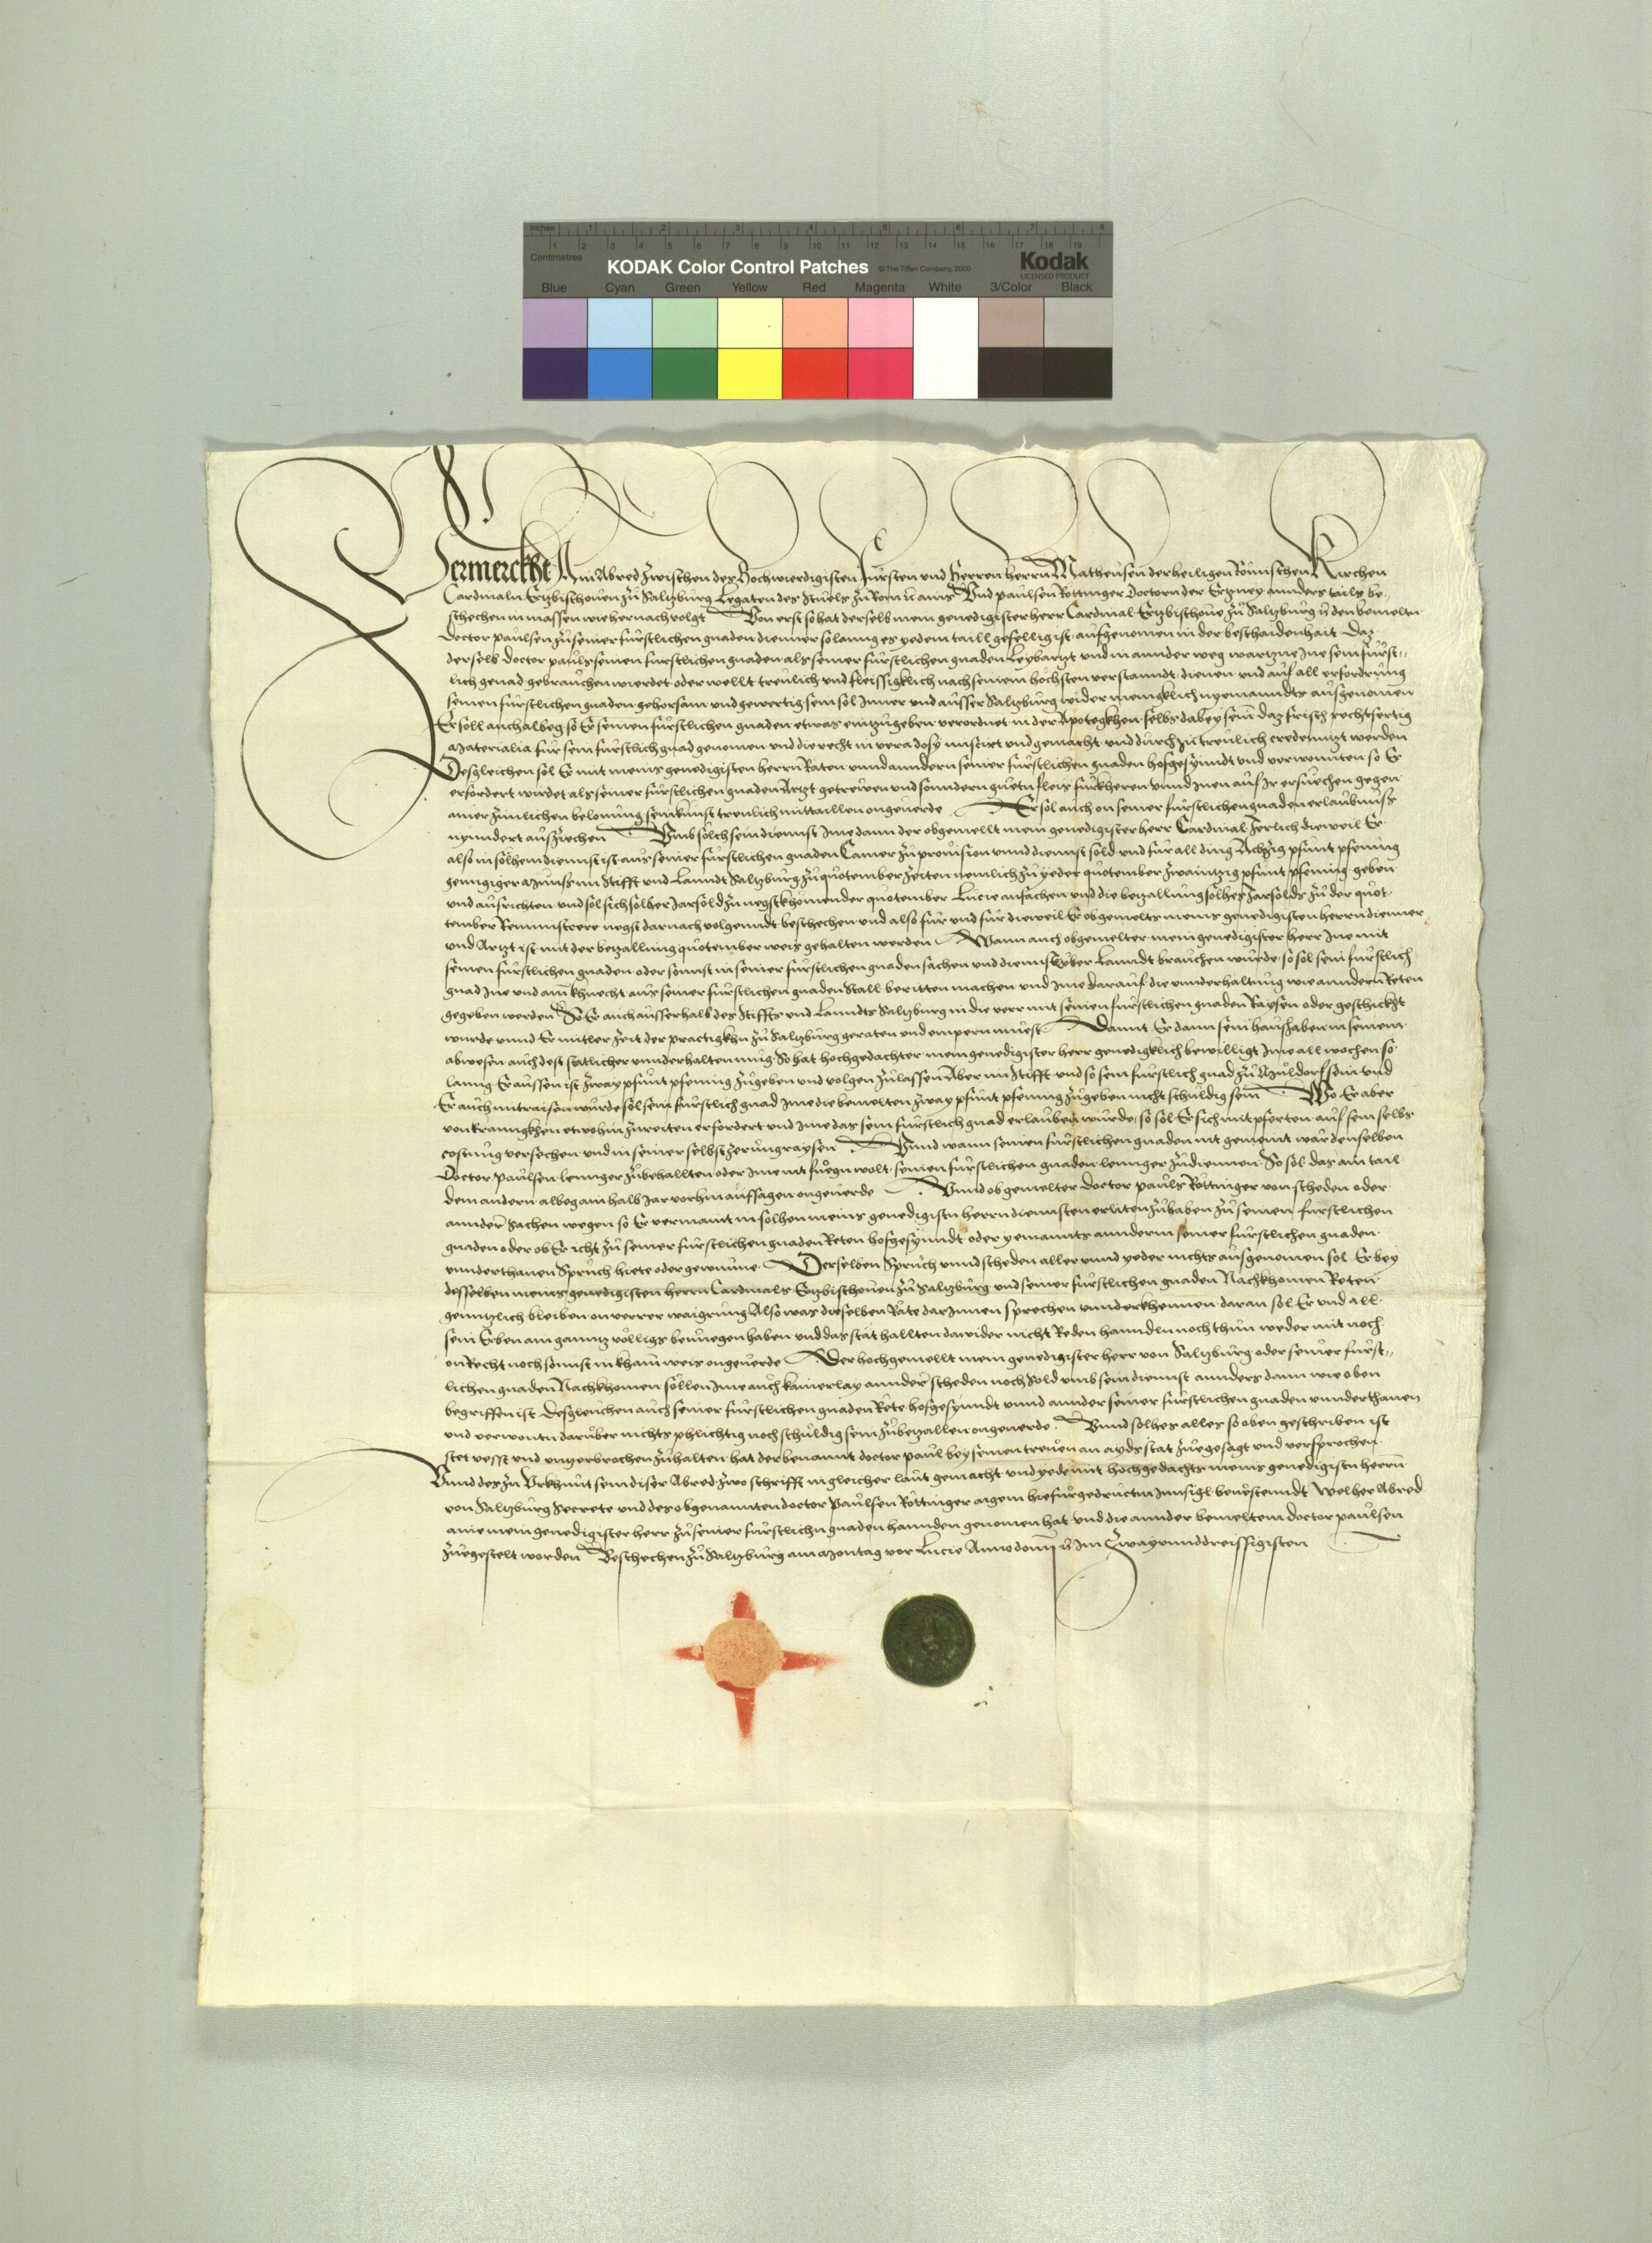 Inches 1 2 3 4 5 6 7 8
1 2 3 4 5 6 7 8 9 10 11 12 13 14 15 16 17 18 19
Centimetres
KODAK Color Control Patches © The Tiffen Company, 2000 Kodak
LICENSED PRODUCT
Blue Cyan Green Yellow Red Magenta White 3/Color Black
Vermerckht Ain Abred zwischen des Hochwierdigisten Fürsten und Herren herrn Matheusen der heiligen Römischen Kirchen
Cardinaln Ertzbischouen zů Saltzburg Legaten des Stuels zů Rom ains Und paulsen Rottinger Doctorn der Ertzney annders tails be-
schechen in massen wie hernachvolgt Von erst so hat derselb mein genedigister herr Cardinal Ertzbischoue zů Saltzburg den bemeltn
Doctor paulsen zů seiner fürstlichen gnaden diennner solanng es yedem taill gefellig ist aufgenomen in der beschaidenhait Daz
derselb doctor pauls seinen fürstlichen gnaden als seiner fürstlichen gnaden Leybartzt und in annder weg wartzue Ine sein fürst-
lich genad gebrauchen wierdet oder wellt treulich und fleissigklich nach seinem höchsten verstanndt dienen und auf all erfordrung
seinen fürstlichen gnaden gehorsam und gewertig sein sol Inner und ausser Saltzburg wider menigklich nyemanndts ausgenomen
Er soll auch albeg so Er seinen fürstlichen gnaden etwas einzugeben verordnet in der Apotegkhen selbs dabey sein daz frisch rechtfertig
Materialia für sein fürstlich gnad genomen und die recht in vera dosy mistirt und gemacht und durch In treulich credenntzt werden
Desgleichen sol Er mit meins genedigisten herrn Räten unnd anndern seiner fürstlichen gnaden hofgesynndt und verwonten so Er
erfordert wirdet als seiner fürstlichen gnaden Artzt getreuen und sonndern guetn fleis fürkheren unnd Inen auf Ir ersuechen gegen
ainer zimlichen belonung sein kunst treulich mittaillen ongeuerde Er sol auch on seiner fürstlichen gnaden erlaubnuss
nynndert ausziechen Umb sölch sein diennst Ime dann der obgemellt mein genedigister herr Cardinal Järlich dieweil Er
also in sölhem diennst ist aus seiner fürstlichen gnaden Camer zů prouision unnd diennst sold und für all ding Achtzig pfunt pfening
genngiger Münss im Stifft und Lanndt Saltzburg zů quotember zeiten nemlich zů yeder quotember zwaintzig pfunt pfening geben
und ausrichten und sol sich solher Jarsold zů negstkhomender quotember Lucie anfachen und die betzallung sölhes Jarsolds zů der quot-
tember Reminiscere negst darnach volgenndt beschechen und also für und für dieweil Er obgemelts meins genedigisten herrn diennner
und Artzt ist mit der betzallung quotember weis gehalten werden Wann auch obgemelter mein genedigister herr Ine mit
seinen fürstlichen gnaden oder sonnst in seiner fürstlichen gnaden sachen und diennst über Lanndt brauchen wurde so sol sein fürstlich
gnad Ine und ain khnecht aus seiner fürstlichen gnaden Stall beritten machen und Ime darauf die unnderhaltung wie anndern Reten
gegeben werden So Er auch ausserhalb des Stiffts und Lanndts Saltzburg in die verr mit seinen fürstlichen gnaden Raysen oder geschickht
wurde unnd Er mitler zeit der practigkhn zů Saltzburg geraten und empern müest Damit Er dann sein haushaben in seinem
abwesen auch dest statlicher unnderhalten mug So hat hochgedachter mein genedigister herr genedigklich bewilligt Ime all wochen so
lanng Er aussen ist zway pfunt pfening zůgeben und volgen zůlassen Aber im Stifft und so sein fürstlich gnad zů Müldorf sein und
Er auch mitraisen wurde sol sein fürstlich gnad Ime die bemelten zway pfunt pfening zůgeben nicht schuldig sein Wo Er aber
von kranngkhen etwohin zureiten erfordert und Ime das sein fürstlich gnad erlauben wurde so sol Er sich mit pferten auf sein selbs
costung versechen und in seiner selbst zerung raysen Unnd wann seinen fürstlichen gnaden nit gemeint war denselben
Doctor Paulsen lennger zůbehallten oder Ime nit fuegn wolt seinen fürstlichen gnaden lennger zůdiennen So sol das ain tail
dem andern albeg ain halb Jar vorhin aufsagen ongeuerde Unnd ob gemelter Doctor pauls Rottinger von scheden oder
annder sachen wegen so Er vermaint in solhen meins genedigistn herrn diennsten erliten zůhaben zů seinen fürstlichen
gnaden oder ob Er icht zů seiner fürstlichen gnaden Reten hofgesynndt oder yemannts anndern seiner fürstlichen gnaden
unnderthanen Spruch hiete oder gewunne Derselben Spruch unnd scheden aller unnd yeder nichts ausgenomen sol Er bey
desselben meins genedigisten herrn Cardinals Ertzbischouen zů Saltzburg und seiner fürstlichen gnaden Nachkhomen Reten
genntzlich bleiben on verrer waigrung Also was dieselben Räte darInnen sprechen unnd erkhennen daran sol Er und all
sein Erben ain ganntz völligs benuegen haben und das stät hallten dawider nicht Reden hanndln noch thun weder mit noch
on Recht noch sonnst in khain weis ongeuerde Der hochgemellt mein genedigister herr von Saltzburg oder seiner fürst-
lichen gnaden Nachkhomen söllen Ime auch kainerlay annder scheden noch Sold umb sein diennst annders dann wie oben
begriffen ist Desgleichen auch seiner fürstlichen gnaden Rete hofgesynndt unnd annder seiner fürstlichen gnaden unnderthanen
und verwontn darüber nichts phlichtig noch schuldig sein zůbetzallen ongeuerde. Unnd solhes alles so oben geschriben ist
stet vesst und unzerbrochen zůhalten hat der benannt doctor paul bey seinen treuen an ayds stat zuegesagt und versprochen
Unnd des zů Urkhunt sein diser Abred zwo schrifft in gleicher laut gemacht und yede mit hochgedachts meins genedigistn herrn
von Saltzburg Secrete und des obgenannten doctor Paulsen Rottinger aigem hiefürgedructn Innsigl beuestenndt Welher Abred
aine mein genedigister herr zů seiner fürstlichn gnaden hannden genomen hat und die annder bemeltem doctor paulsen
zůegestelt worden Beschechen zů Saltzburg am Montag vor Lucie Anno domini Im Zwayunddreissigisten